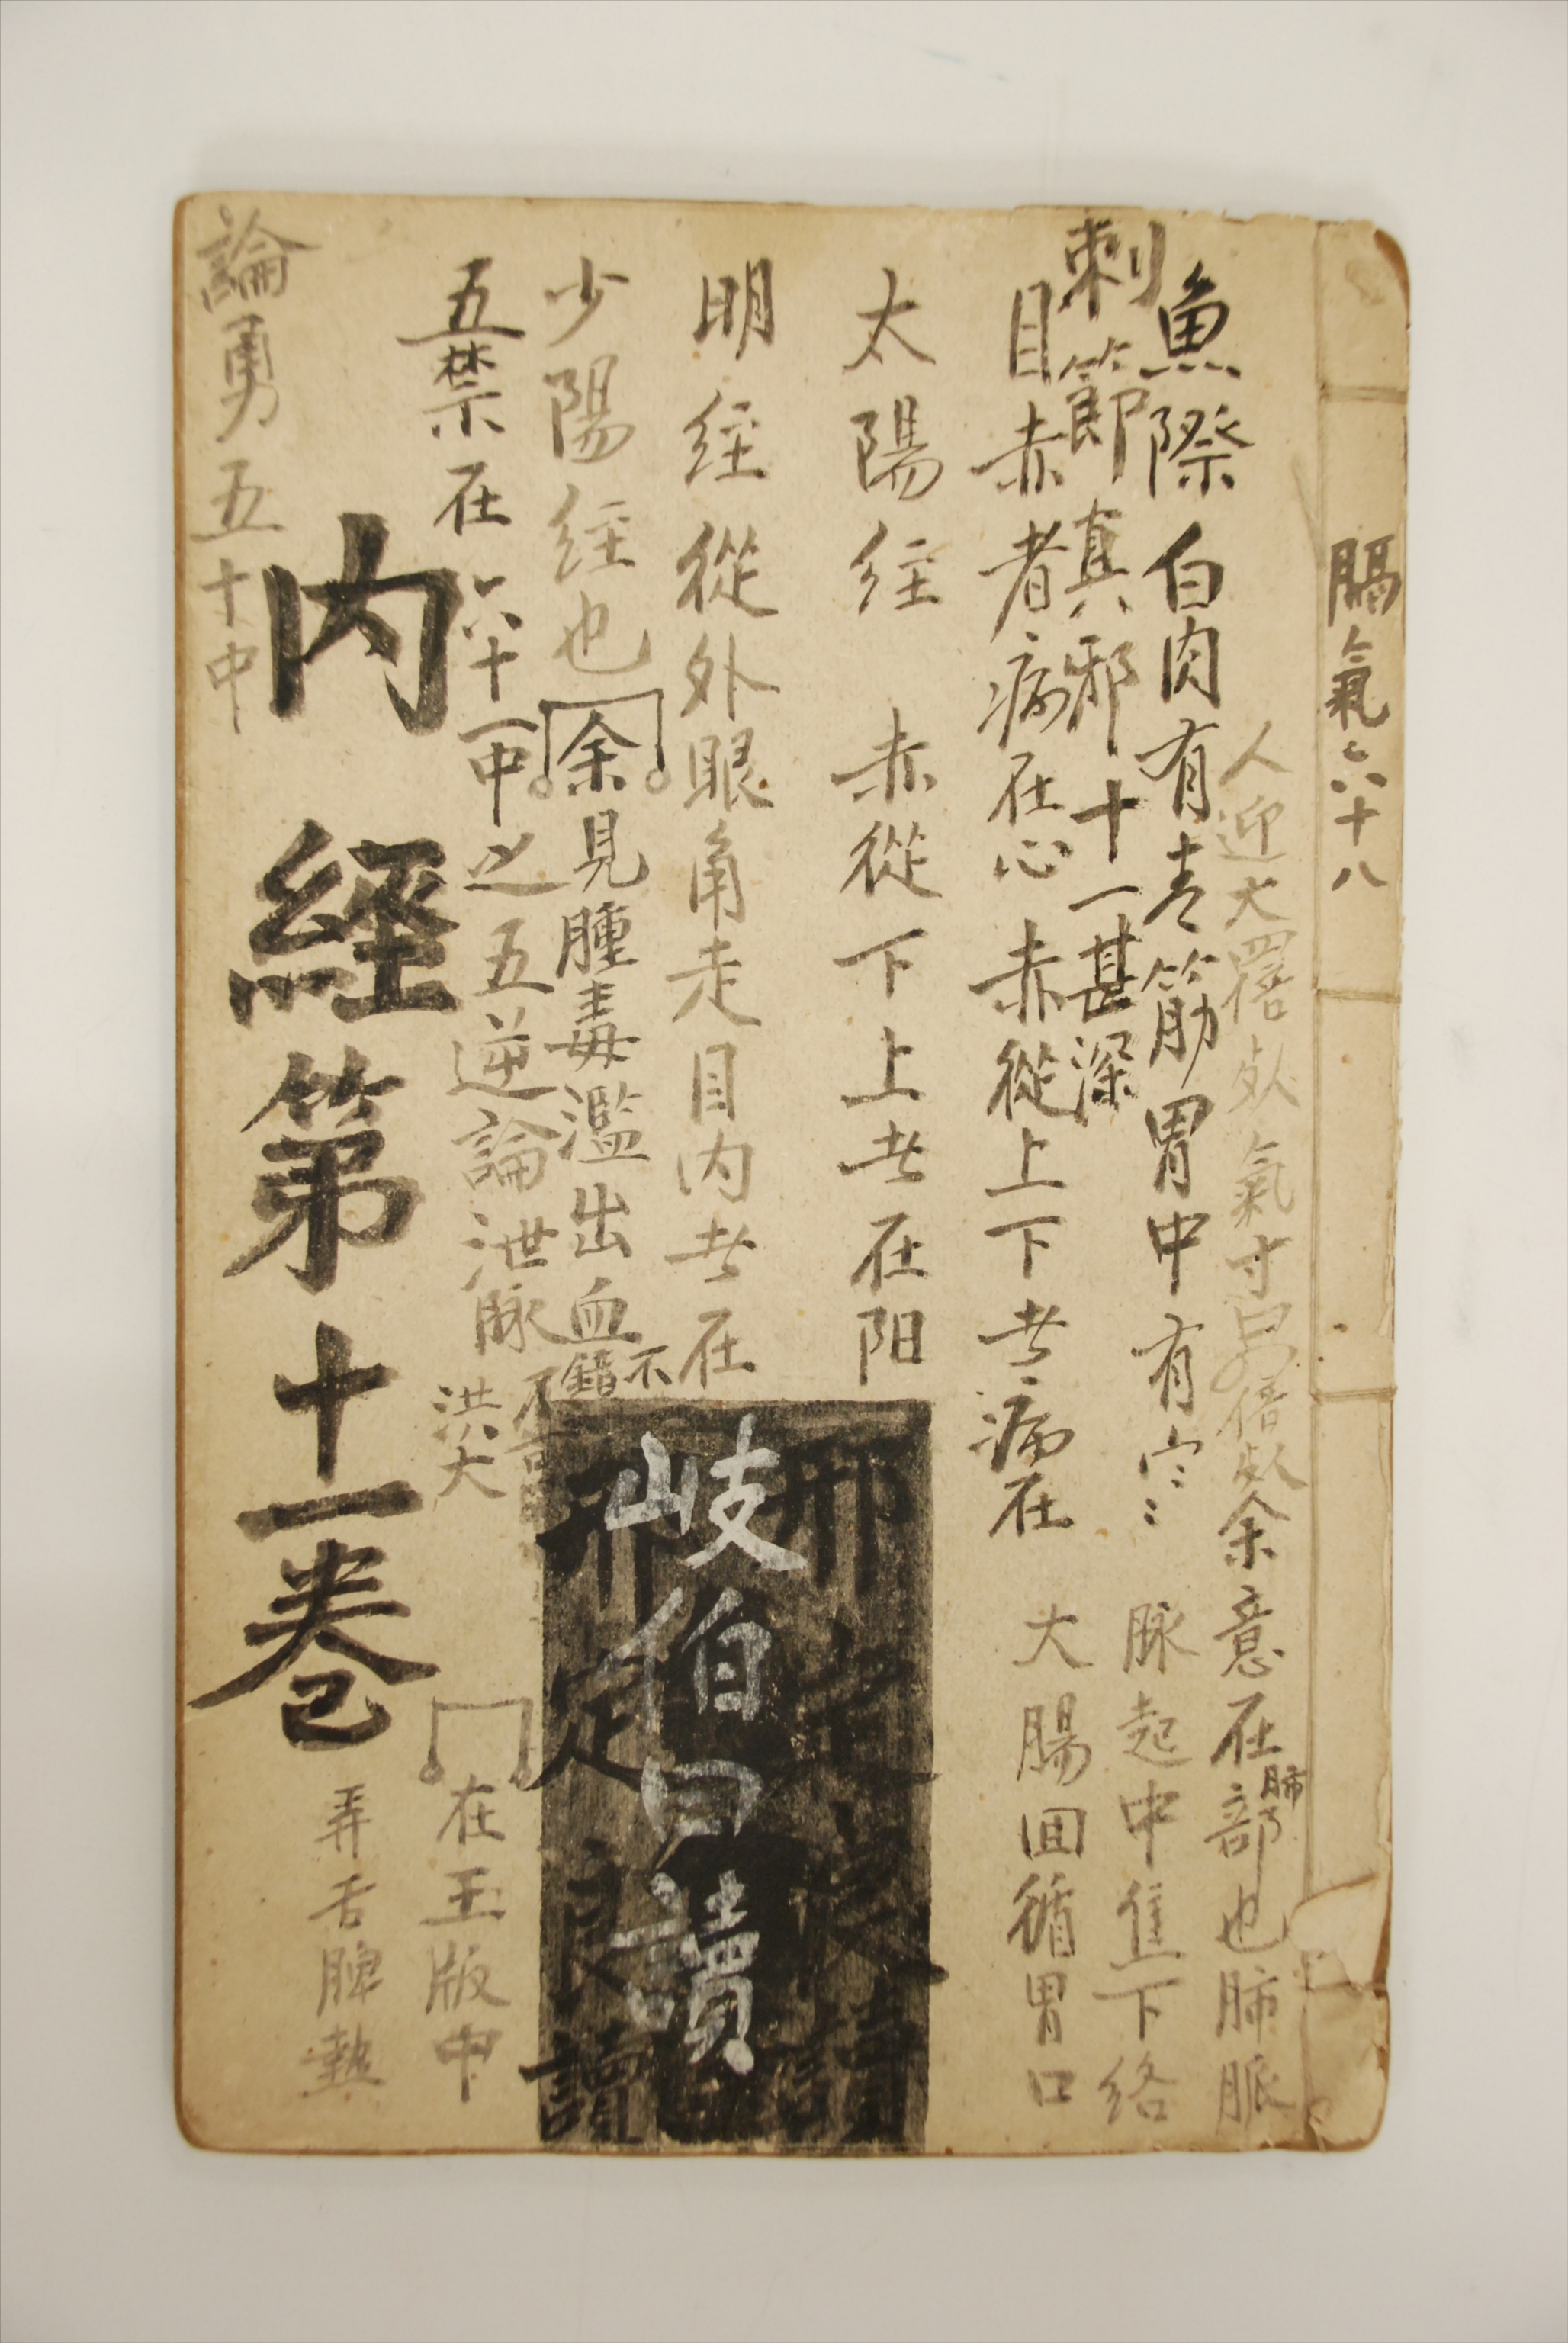 膈氣六十八
人迎大四倍 氣寸口 倍 余意在肺部也肺脈
魚際白肉有青筋胃中有寒 脉起中焦下絡
刺節真邪十一甚深
目赤者病在心赤從上下者病在 大腸回循胃口
太陽經 赤從下上者在阳
明經從外眼角走目內者在
少陽經也余見腫毒濫出血不錯
五禁在六十一中之五逆論泄脉 洪大
在玉版中
岐伯曰讀
內經第十一卷
弄舌脾熱
論勇五十中